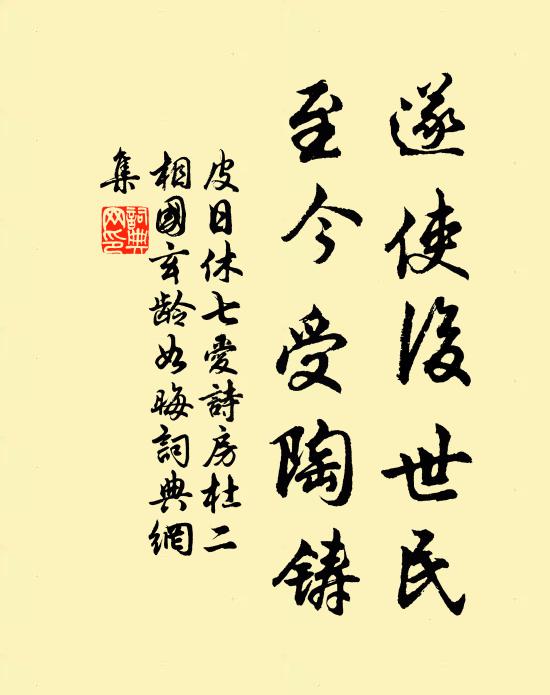 遂使後世民
至今受陶鑄
皮日休七愛詩房杜二
相國玄齡如晦詞典網
集
詞典網印